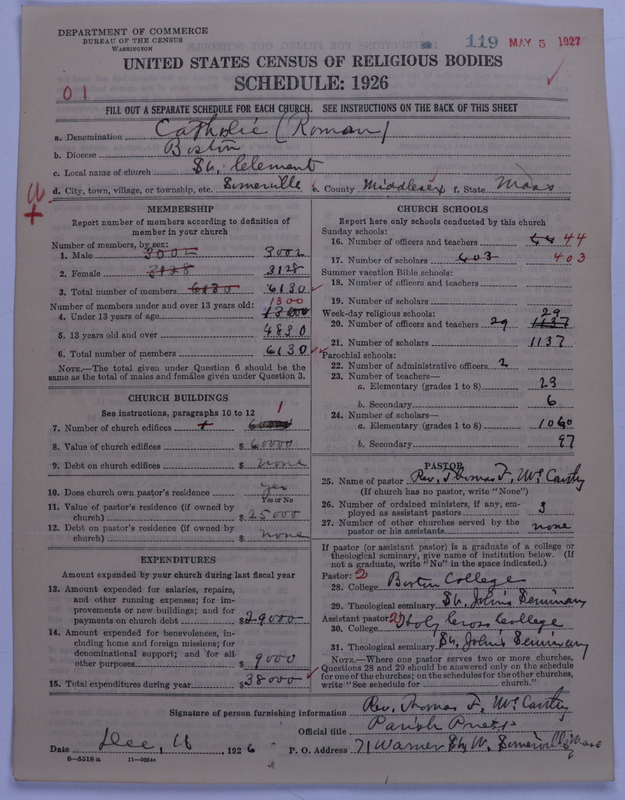 DEPARTMENT OF COMMERCE
BUREAU OF THE CENSUS
WASHINGTON
119 MAY 5 1927
UNITED STATES CENSUS OF RELIGIOUS BODIES
SCHEDULE: 1926
01
FILL OUT A SEPARATE SCHEDULE FOR EACH CHURCH. SEE INSTRUCTIONS ON THE BACK OF THIS SHEET
a. Denomination Catholic (Roman)
b. Diocese Boston
c. Local name of church St. Clement
d. City, town, village, or township, etc. Somerville e. County Middlesex f. State Mass
MEMBERSHIP
Report number of members according to definition of
member in your church
Number of members, by sex:
1. Male 3002 3002
2. Female 3128 3128
3. Total number of members 6130 6130
Number of members under and over 13 years old: 1300
4. Under 13 years of age 1300
5. 13 years old and over 4830
6. Total number of members 6130
NOTE.—The total given under Question 6 should be the
same as the total of males and females given under Question 3.
CHURCH BUILDINGS
See instructions, paragraphs 10 to 12
7. Number of church edifices 1
8. Value of church edifices $ 60000
9. Debt on church edifices $ none
10. Does church own pastor's residence yes
Yes or No
11. Value of pastor's residence (if owned by
church) $ 25000
12. Debt on pastor's residence (if owned by
church) $ none
EXPENDITURES
Amount expended by your church during last fiscal year
13. Amount expended for salaries, repairs,
and other running expenses; for im-
provements or new buildings; and for
payments on church debt $ 29000
14. Amount expended for benevolences, in-
cluding home and foreign missions; for
denominational support; and for all
other purposes $ 9000
15. Total expenditures during year $ 38000
CHURCH SCHOOLS
Report here only schools conducted by this church
Sunday schools:
16. Number of officers and teachers 44 44
17. Number of scholars 403 403
Summer vacation Bible schools:
18. Number of officers and teachers
19. Number of scholars
Week-day religious schools: 29
20. Number of officers and teachers 29 1137
21. Number of scholars 1137
Parochial schools:
22. Number of administrative officers 2
23. Number of teachers—
a. Elementary (grades 1 to 8) 23
b. Secondary 6
24. Number of scholars—
a. Elementary (grades 1 to 8) 1060
b. Secondary 97
PASTOR
25. Name of pastor Rev. Thomas F. McCarthy
(If church has no pastor, write "None")
26. Number of ordained ministers, if any, em-
ployed as assistant pastors 3
27. Number of other churches served by the
pastor or his assistants none
If pastor (or assistant pastor) is a graduate of a college or
theological seminary, give name of institution below. (If
not a graduate, write "No" in the space indicated.)
Pastor: 2
28. College Boston College
29. Theological seminary St. John's Seminary
Assistant pastor: 2
30. College Holy Cross College
31. Theological seminary St. John's Seminary
NOTE.—Where one pastor serves two or more churches,
Questions 28 and 29 should be answered only on the schedule
for one of the churches; on the schedules for the other churches,
write "See schedule for church."
Signature of person furnishing information Rev. Thomas F. McCarthy
Official title Parish Priest
Date Dec, 16 1926 P. O. Address 71 Warner St, W. Somerville, Mass
6—5518a 11—9054a